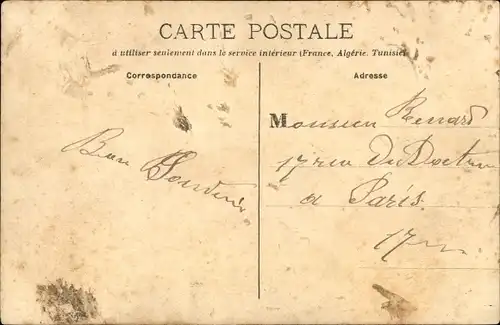 CARTE POSTALE
à utiliser seulement dans le service intérieur (France, Algérie, Tunisie)
Correspondance
Adresse
Bon Souvenir
Monsieur Renard
17 rue Du Docteur
a Paris
17